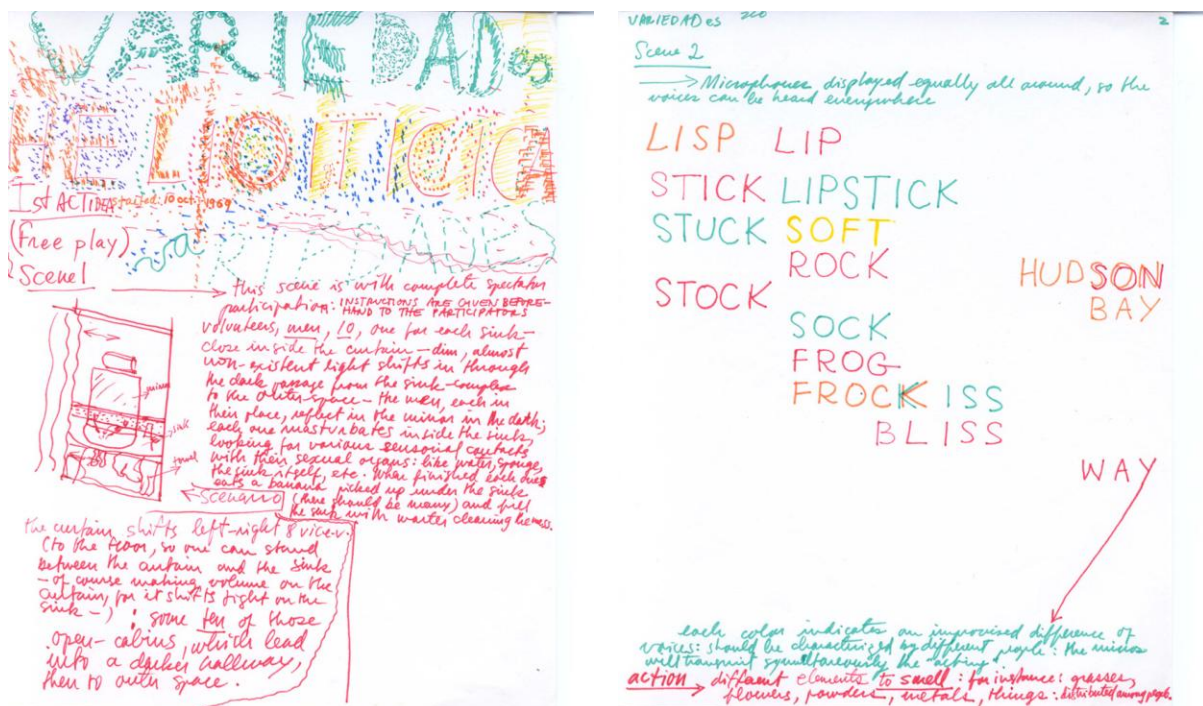 VARIEDADS
HELIOTICICA
1st ACT IDEA started: 10 oct. 1969
(free play)
Scene 1
this scene is with complete spectator
participation: INSTRUCTIONS ARE GIVEN BEFORE-
HAND TO THE PARTICIPATORS
volunteers, men, 10, one for each sink-
close inside the curtain — dim, almost
non-existent light shifts in through
the dark passage from the sink-complex
to the outer-space — the men, each in
their place, reflect in the mirror in the dark;
each one masturbates inside the sink,
looking for various sensorial contacts
with their sexual organs: like water, sponge,
the sink itself, etc. When finished each one
eats a banana picked up under the sink
(there should be many) and fill
the sink with water cleaning the mess.
mirror
sink
towel
scenario
the curtain shifts left-right & vice-v.
(to the floor, so one can stand
between the curtain and the sink
— of course making volume on the
curtain, for it shifts tight on the
sink —) : some ten of those
open-cabins, which lead
into a darker hallway,
then to outer space.
VARIEDADES 2
Scene 2
Microphones displayed equally all around, so the
voices can be heard everywhere
LISP LIP
STICK LIPSTICK
STUCK SOFT
ROCK
HUDSON
BAY
STOCK
SOCK
FROG
FROCK KISS
BLISS
WAY
each color indicates an improvised difference of
voices: should be characterized by different people: the micros
will transmit simultaneously the "acting"
action different elements to smell: for instance: grasses,
flowers, powders, metals, things: distributed among people.